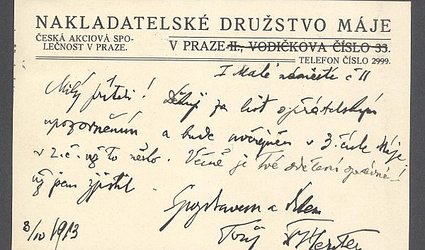 NAKLADATELSKÉ DRUŽSTVO MÁJE
ČESKÁ AKCIOVÁ SPO-
LEČNOST V PRAZE.
V PRAZE II., VODIČKOVA ČÍSLO 33.
TELEFON ČÍSLO 2999.
I Malé náměstí č 11
Milý příteli! Děkuji za list s přátelským
upozorněním a bude uveřejněn v 3. čísle Máje
v 2. č. už to nešlo. Věcně je Tvé
už jsem zjistil.
S pozdravem a
Tvůj
3/IV 1913